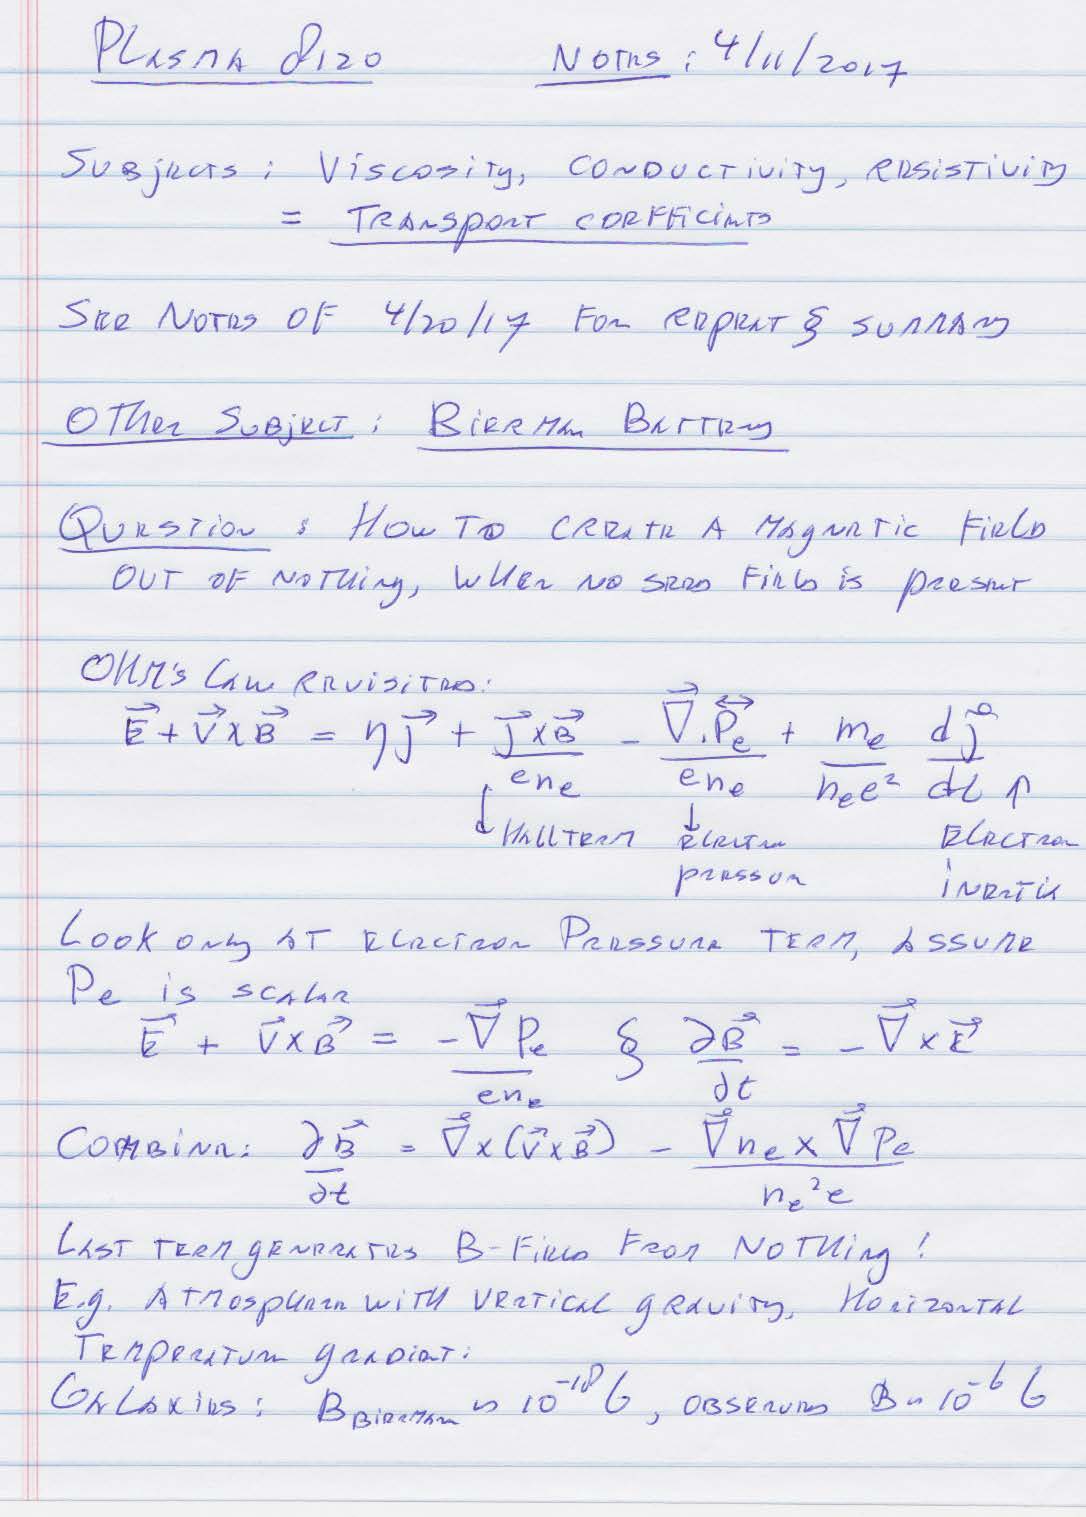 PLASMA 8120 NOTES: 4/11/2017
SUBJECTS: VISCOSITY, CONDUCTIVITY, RESISTIVITY
= TRANSPORT COEFFICINTS
SEE NOTES OF 4/20/17 FOR REPEAT & SUMMARY
OTHER SUBJECT: BIERMAN BATTERY
QUESTION: HOW TO CREATE A MAGNETIC FIELD
OUT OF NOTHING, WHEN NO SEED FIELD IS PRESENT
OHM'S LAW REVISITED:
E⃗ + V⃗ × B⃗ = η j⃗ + (j⃗ × B⃗)/(e nₑ) − (∇⃗ · P⃡ₑ)/(e nₑ) + (mₑ/(nₑ e²)) dj⃗/dt
↓ HALL TERM ↓ ELECTRON PRESSURE ↑ ELECTRON INERTIA
LOOK ONLY AT ELECTRON PRESSURE TERM, ASSURE
Pₑ IS SCALAR
E⃗ + V⃗ × B⃗ = −∇⃗Pₑ/(e nₑ) & ∂B⃗/∂t = −∇⃗ × E⃗
COMBINE: ∂B⃗/∂t = ∇⃗ × (V⃗ × B⃗) − (∇⃗nₑ × ∇⃗Pₑ)/(nₑ² e)
LAST TERM GENERATES B-FIELD FROM NOTHING!
E.g. ATMOSPHERE WITH VERTICAL GRAVITY, HORIZONTAL
TEMPERATURE GRADIENT:
GALAXIES: B_BIERMAN ~ 10⁻¹⁸ G, OBSERVED B ~ 10⁻⁶ G